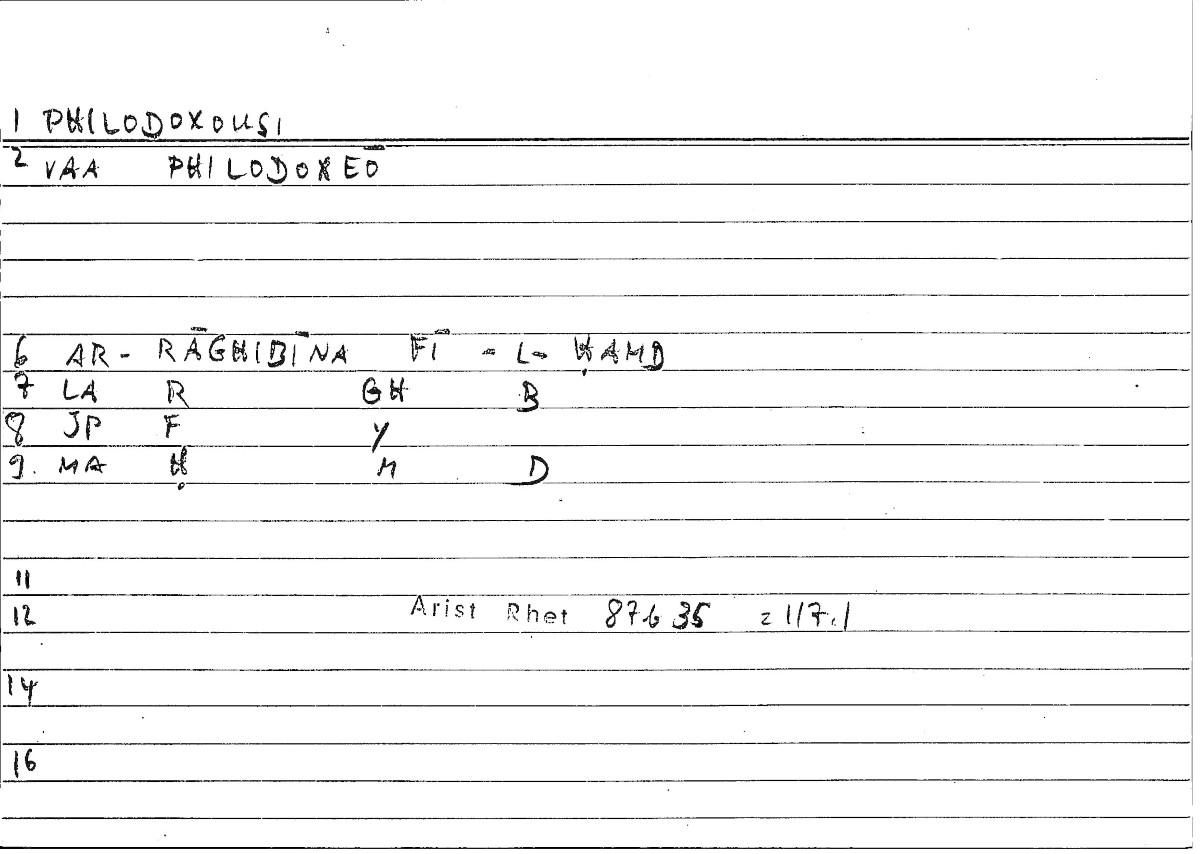 1 PHILODOXOUSI
2 VAA PHILODOXEŌ
6 AR- RĀGHIBĪNA FĪ -L- ḤAMD
7 LA R GH B
8 JP F Y
9. MA Ḥ M D
11
12 Arist Rhet 87b35 = 117.1
14
16